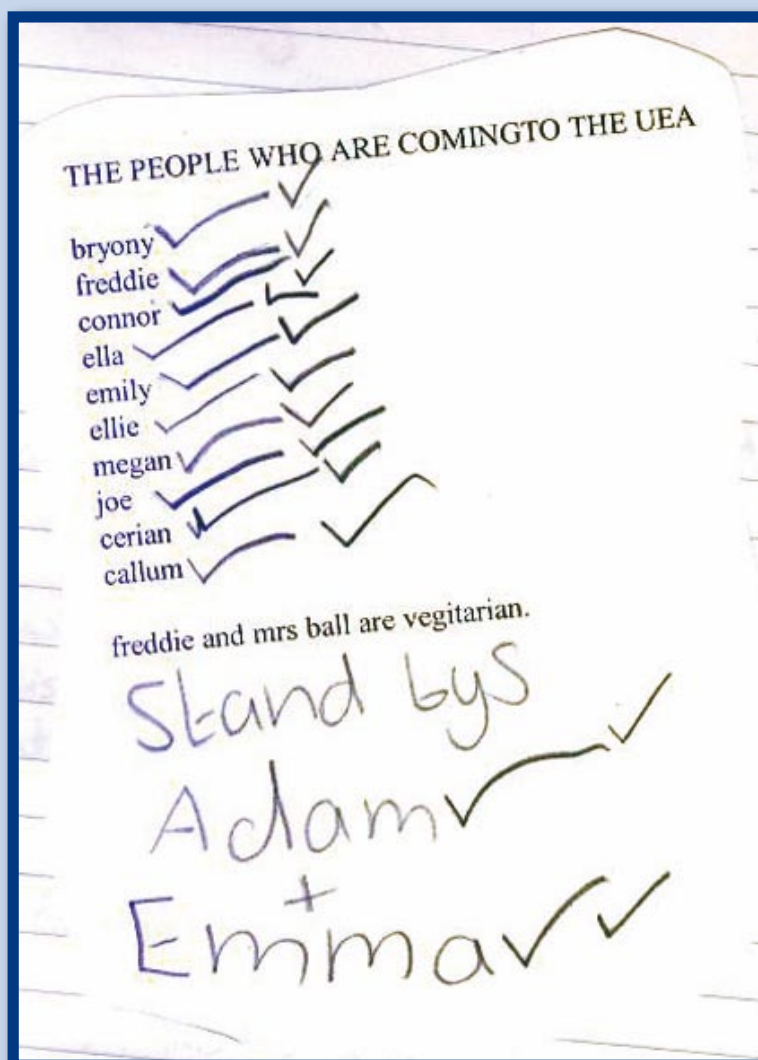 THE PEOPLE WHO ARE COMINGTO THE UEA
bryony
freddie
connor
ella
emily
ellie
megan
joe
cerian
callum
freddie and mrs ball are vegitarian.
Stand bys
Adam
+
Emma